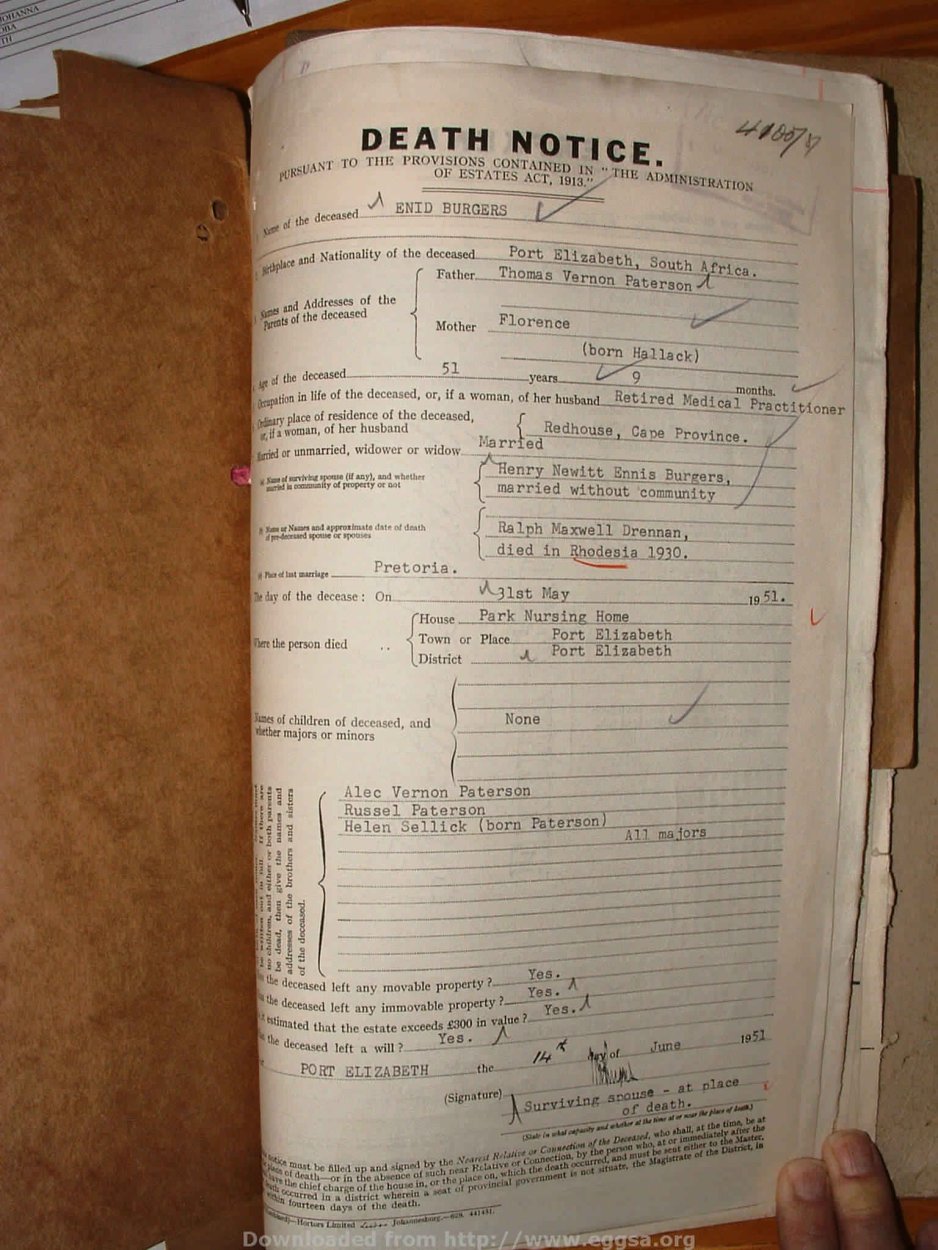 JOHANNA
TH
4100/51
DEATH NOTICE.
PURSUANT TO THE PROVISIONS CONTAINED IN "THE ADMINISTRATION
OF ESTATES ACT, 1913."
Name of the deceased ENID BURGERS
Birthplace and Nationality of the deceased Port Elizabeth, South Africa.
Names and Addresses of the Parents of the deceased
Father Thomas Vernon Paterson
Mother Florence
(born Hallack)
Age of the deceased 51 years 9 months.
Occupation in life of the deceased, or, if a woman, of her husband Retired Medical Practitioner
Ordinary place of residence of the deceased,
or, if a woman, of her husband Redhouse, Cape Province.
Married or unmarried, widower or widow Married
(a) Name of surviving spouse (if any), and whether Henry Newitt Ennis Burgers,
married in community of property or not married without community
(b) Name or Names and approximate date of death Ralph Maxwell Drennan,
of pre-deceased spouse or spouses died in Rhodesia 1930.
(c) Place of last marriage Pretoria.
The day of the decease: On 31st May 1951.
Where the person died ..
House Park Nursing Home
Town or Place Port Elizabeth
District Port Elizabeth
Names of children of deceased, and None
whether majors or minors
be written out in full. If there are
no children, and either or both parents
be dead, then give the names and
addresses of the brothers and sisters
of the deceased.
Alec Vernon Paterson
Russel Paterson
Helen Sellick (born Paterson)
All majors
the deceased left any movable property? Yes.
the deceased left any immovable property? Yes.
estimated that the estate exceeds £300 in value? Yes.
the deceased left a will? Yes.
PORT ELIZABETH the 14th day of June 1951
(Signature)
Surviving spouse - at place
of death.
(State in what capacity and whether at the time at or near the place of death.)
notice must be filled up and signed by the Nearest Relative or Connection of the Deceased, who shall, at the time, be at
place of death—or in the absence of such near Relative or Connection, by the person who, at or immediately after the
have the chief charge of the house in, or the place on, which the death occurred, and must be sent either to the Master,
death occurred in a district wherein a seat of provincial government is not situate, the Magistrate of the District, in
within fourteen days of the death.
Hortors Limited Johannesburg.—629. 441451.
Downloaded from http://www.eggsa.org